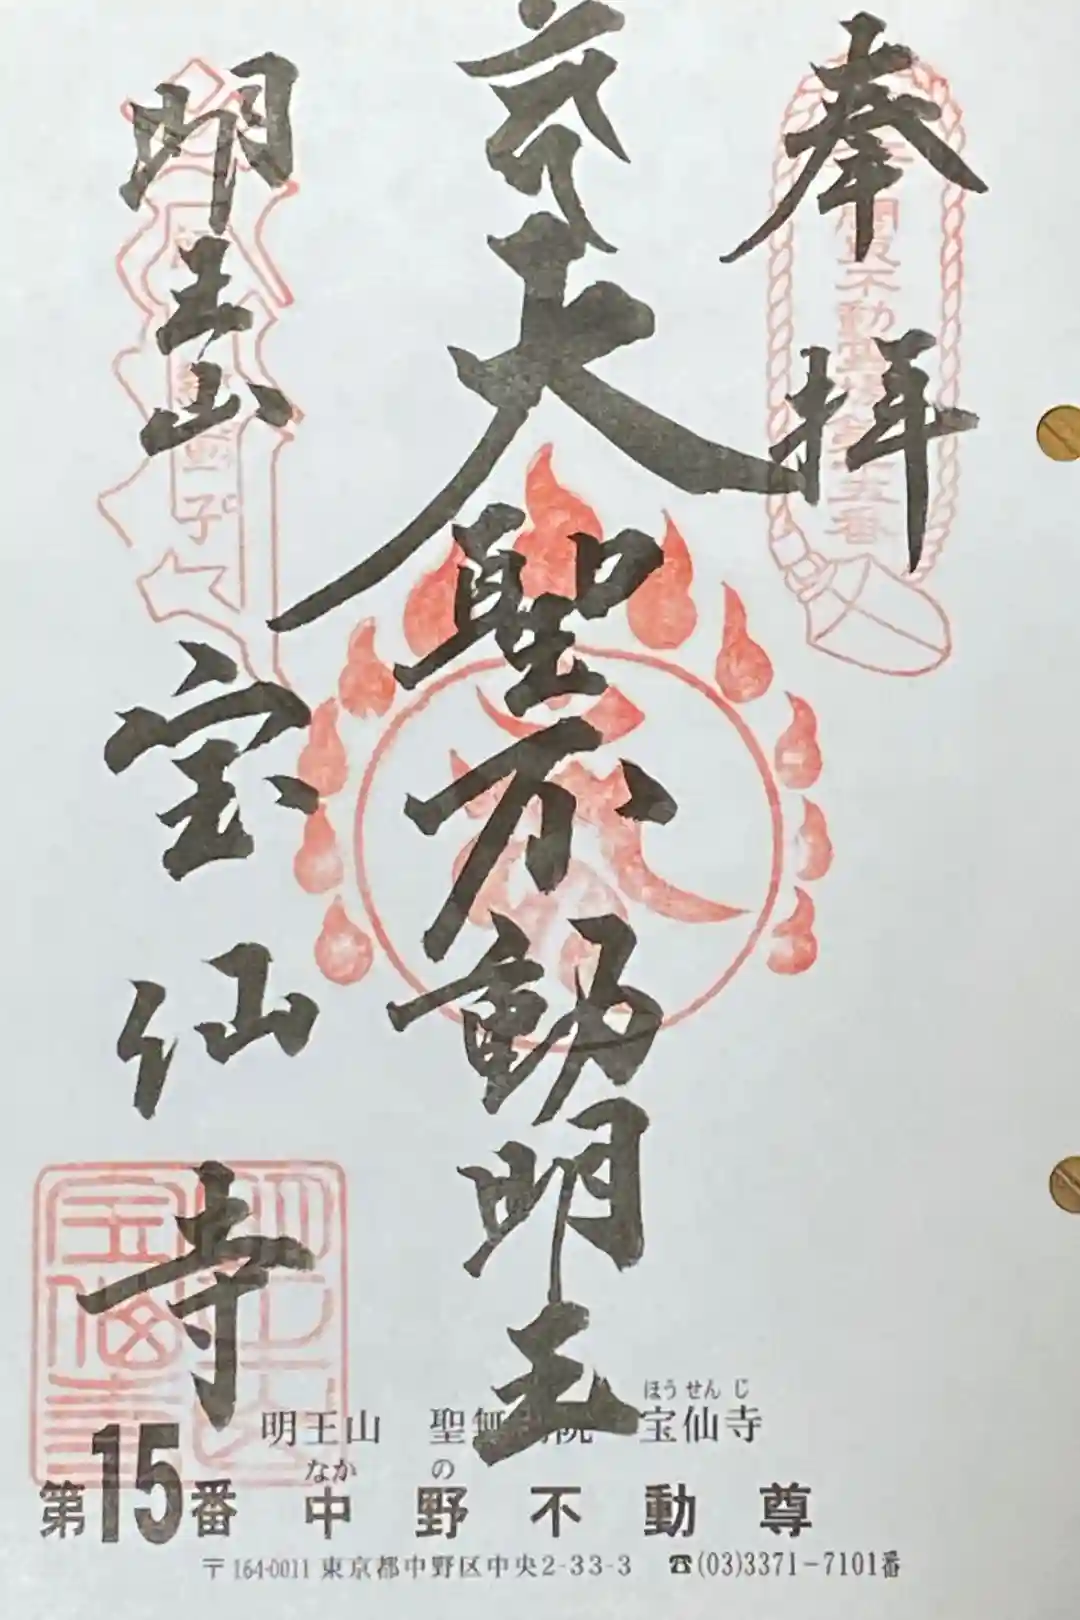 奉拝
大聖不動明王
明王山
宝仙寺
明王山 聖無動院 宝仙寺
ほうせんじ
なかの
第15番 中野不動尊
〒164-0011 東京都中野区中央2-33-3 ☎(03)3371-7101番